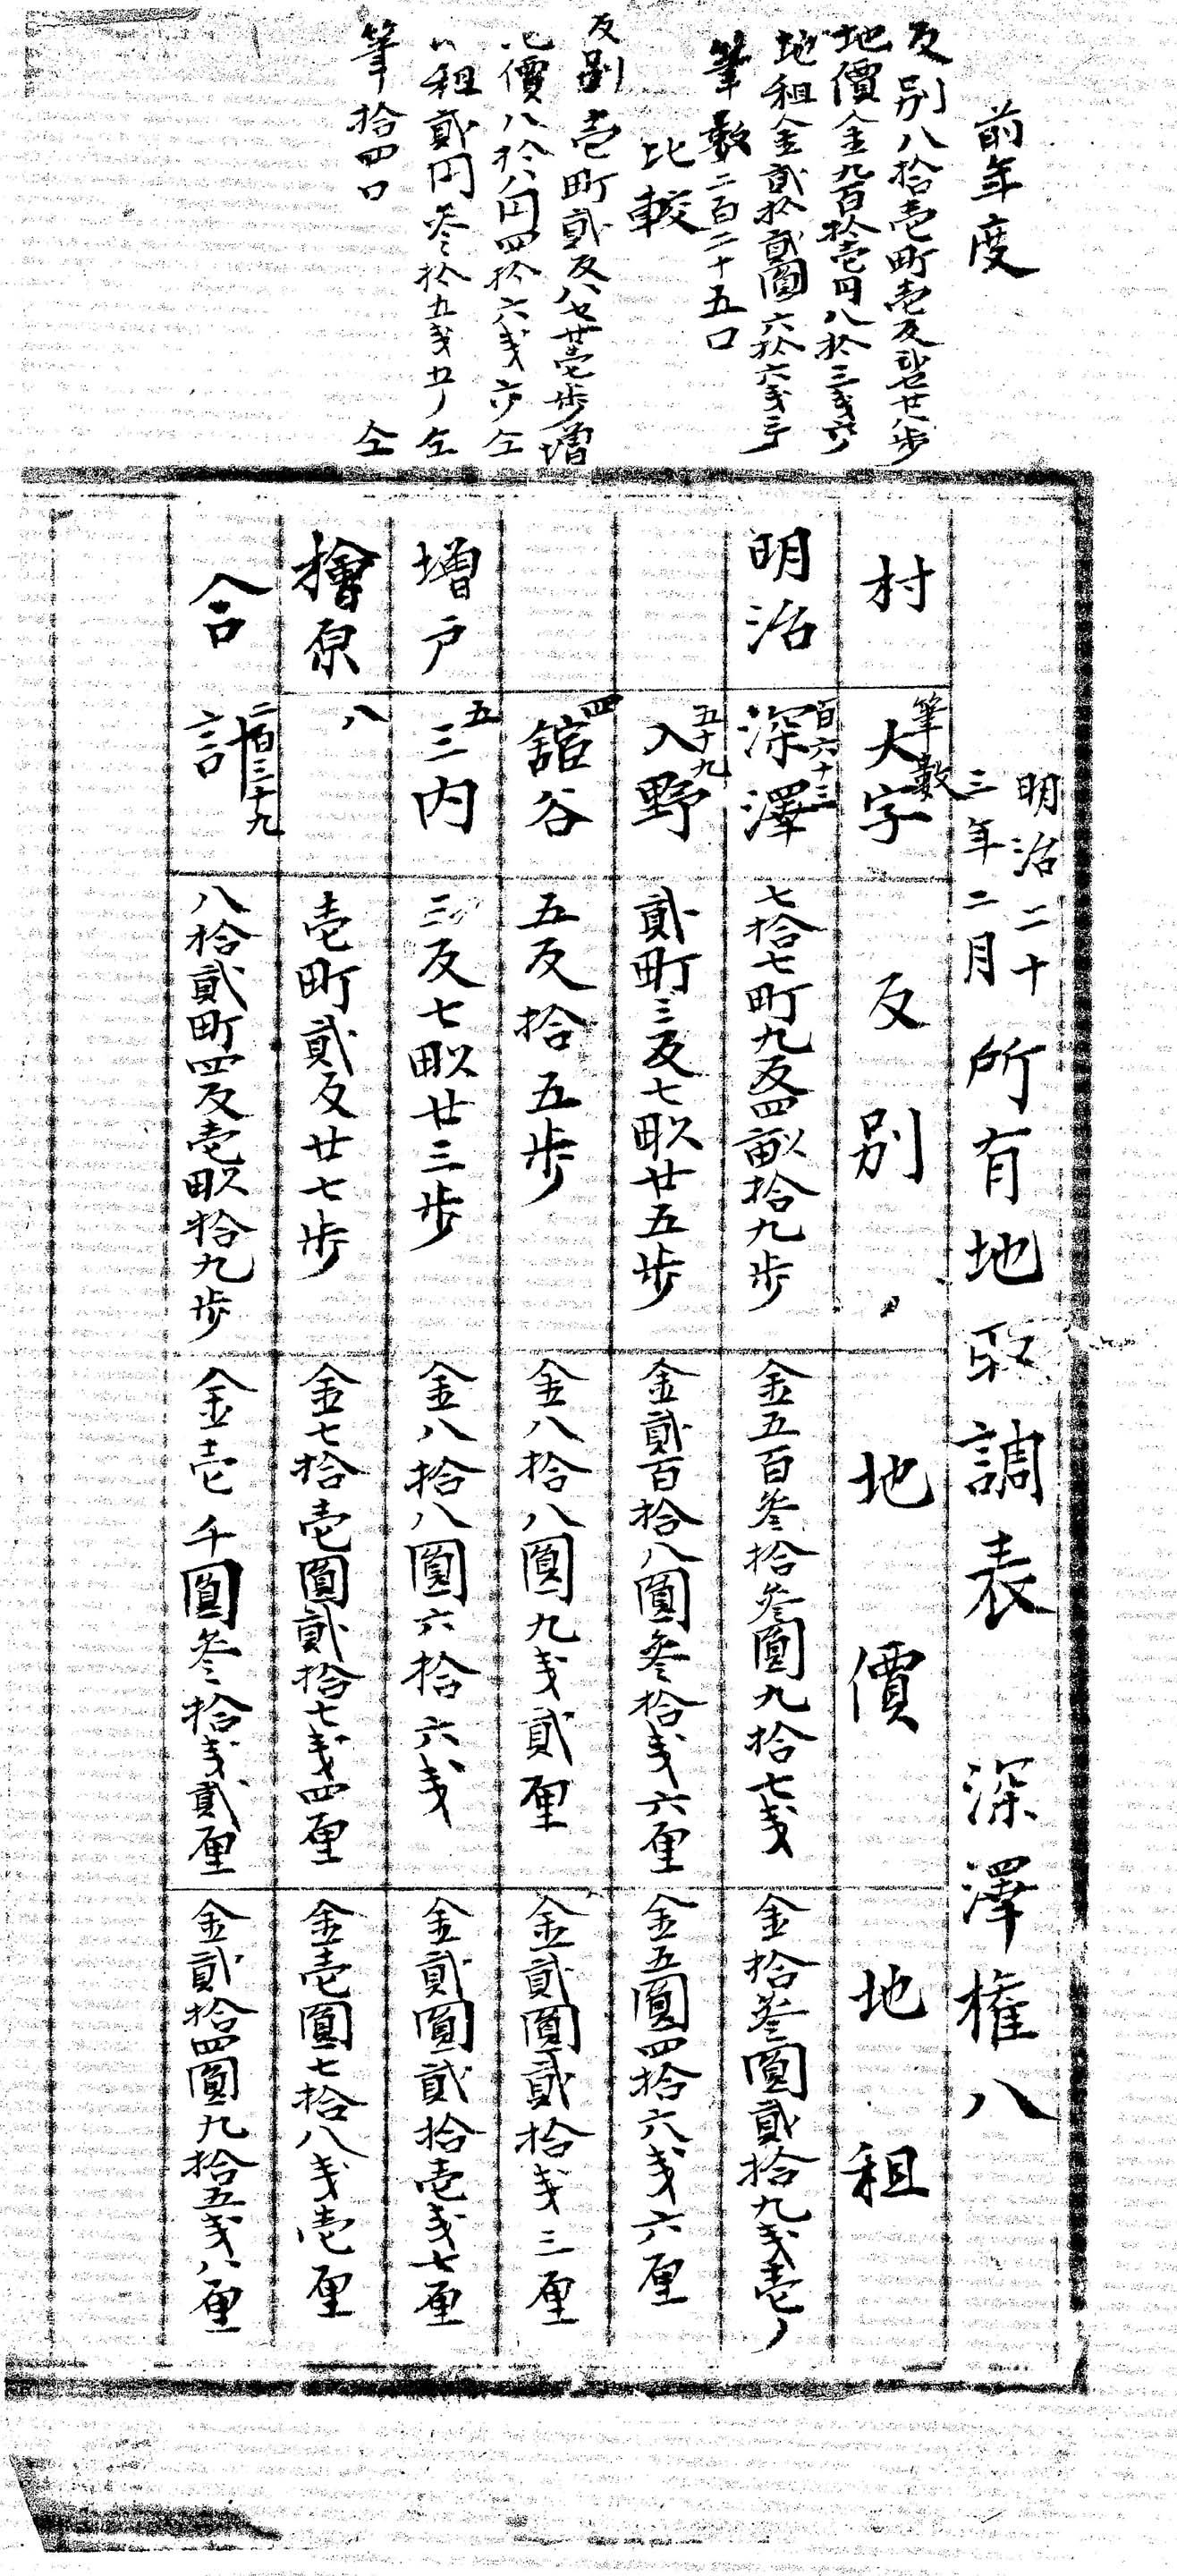 前年度
反別八拾壱町壱反弐せ廿八歩
地價金九百拾壱円八拾三戋六リ
地租金貳拾貳圓六拾六戋三リ
筆數二百二十五口
比較
反別壱町貳反八セ廿壱歩増
地價八拾八円四拾六戋六リ仝
地租貳円叄拾五戋五リ仝
筆拾四口仝
明治二十三年二月 所有地取調表 深澤権八
村 筆數 大字 反別 地價 地租
明治 百六十三 深澤 七拾七町九反四畝拾九歩 金五百叄拾叄圓九拾七戋 金拾叄圓貳拾九戋壱リ
五十九 入野 貳町三反七畝廿五歩 金貳百拾八圓叄拾戋六厘 金五圓四拾六戋六厘
四 舘谷 五反拾五歩 金八拾八圓九戋貳厘 金貳圓貳拾戋三厘
増戸 五 三内 三反七畝廿三歩 金八拾八圓六拾六戋 金貳圓貳拾壱戋七厘
檜原 八 壱町貳反廿七歩 金七拾壱圓貳拾七戋四厘 金壱圓七拾八戋壱厘
合計 二百三十九 八拾貳町四反壱畝拾九歩 金壱千圓叄拾戋貳厘 金貳拾四圓九拾五戋八厘